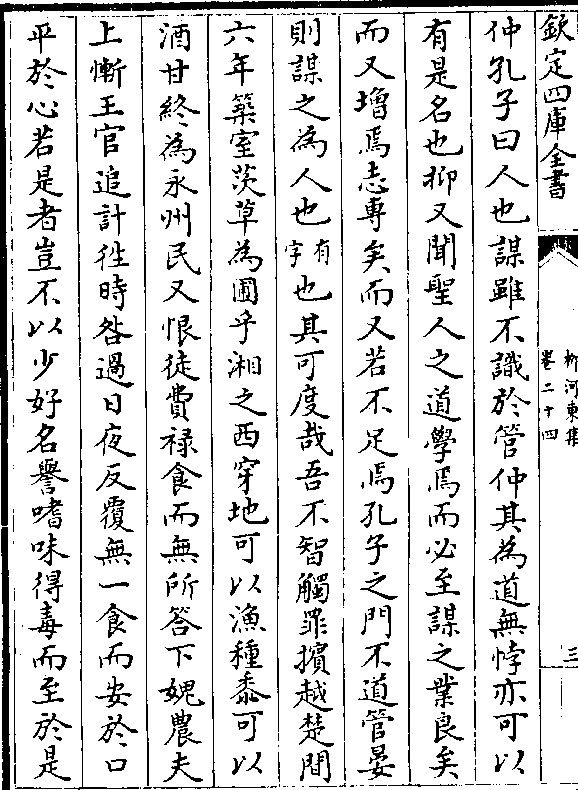 欽定四庫全書
柳河東集
卷二十四
三
仲孔子曰人也謀雖不識於管仲其為道無悖亦可以
有是名也抑又聞聖人之道學焉而必至謀之業良矣
而又增焉志專矣而又若不足焉孔子之門不道管晏
則謀之為人也有字也其可度哉吾不智觸罪擯越楚間
六年築室茨草為圃乎湘之西穿地可以漁種黍可以
酒甘終為永州民又恨徒費祿食而無所答下媿農夫
上慚王官追計徃時咎過日夜反覆無一食而安於口
平於心若是者豈不以少好名譽嗜味得毒而至於是